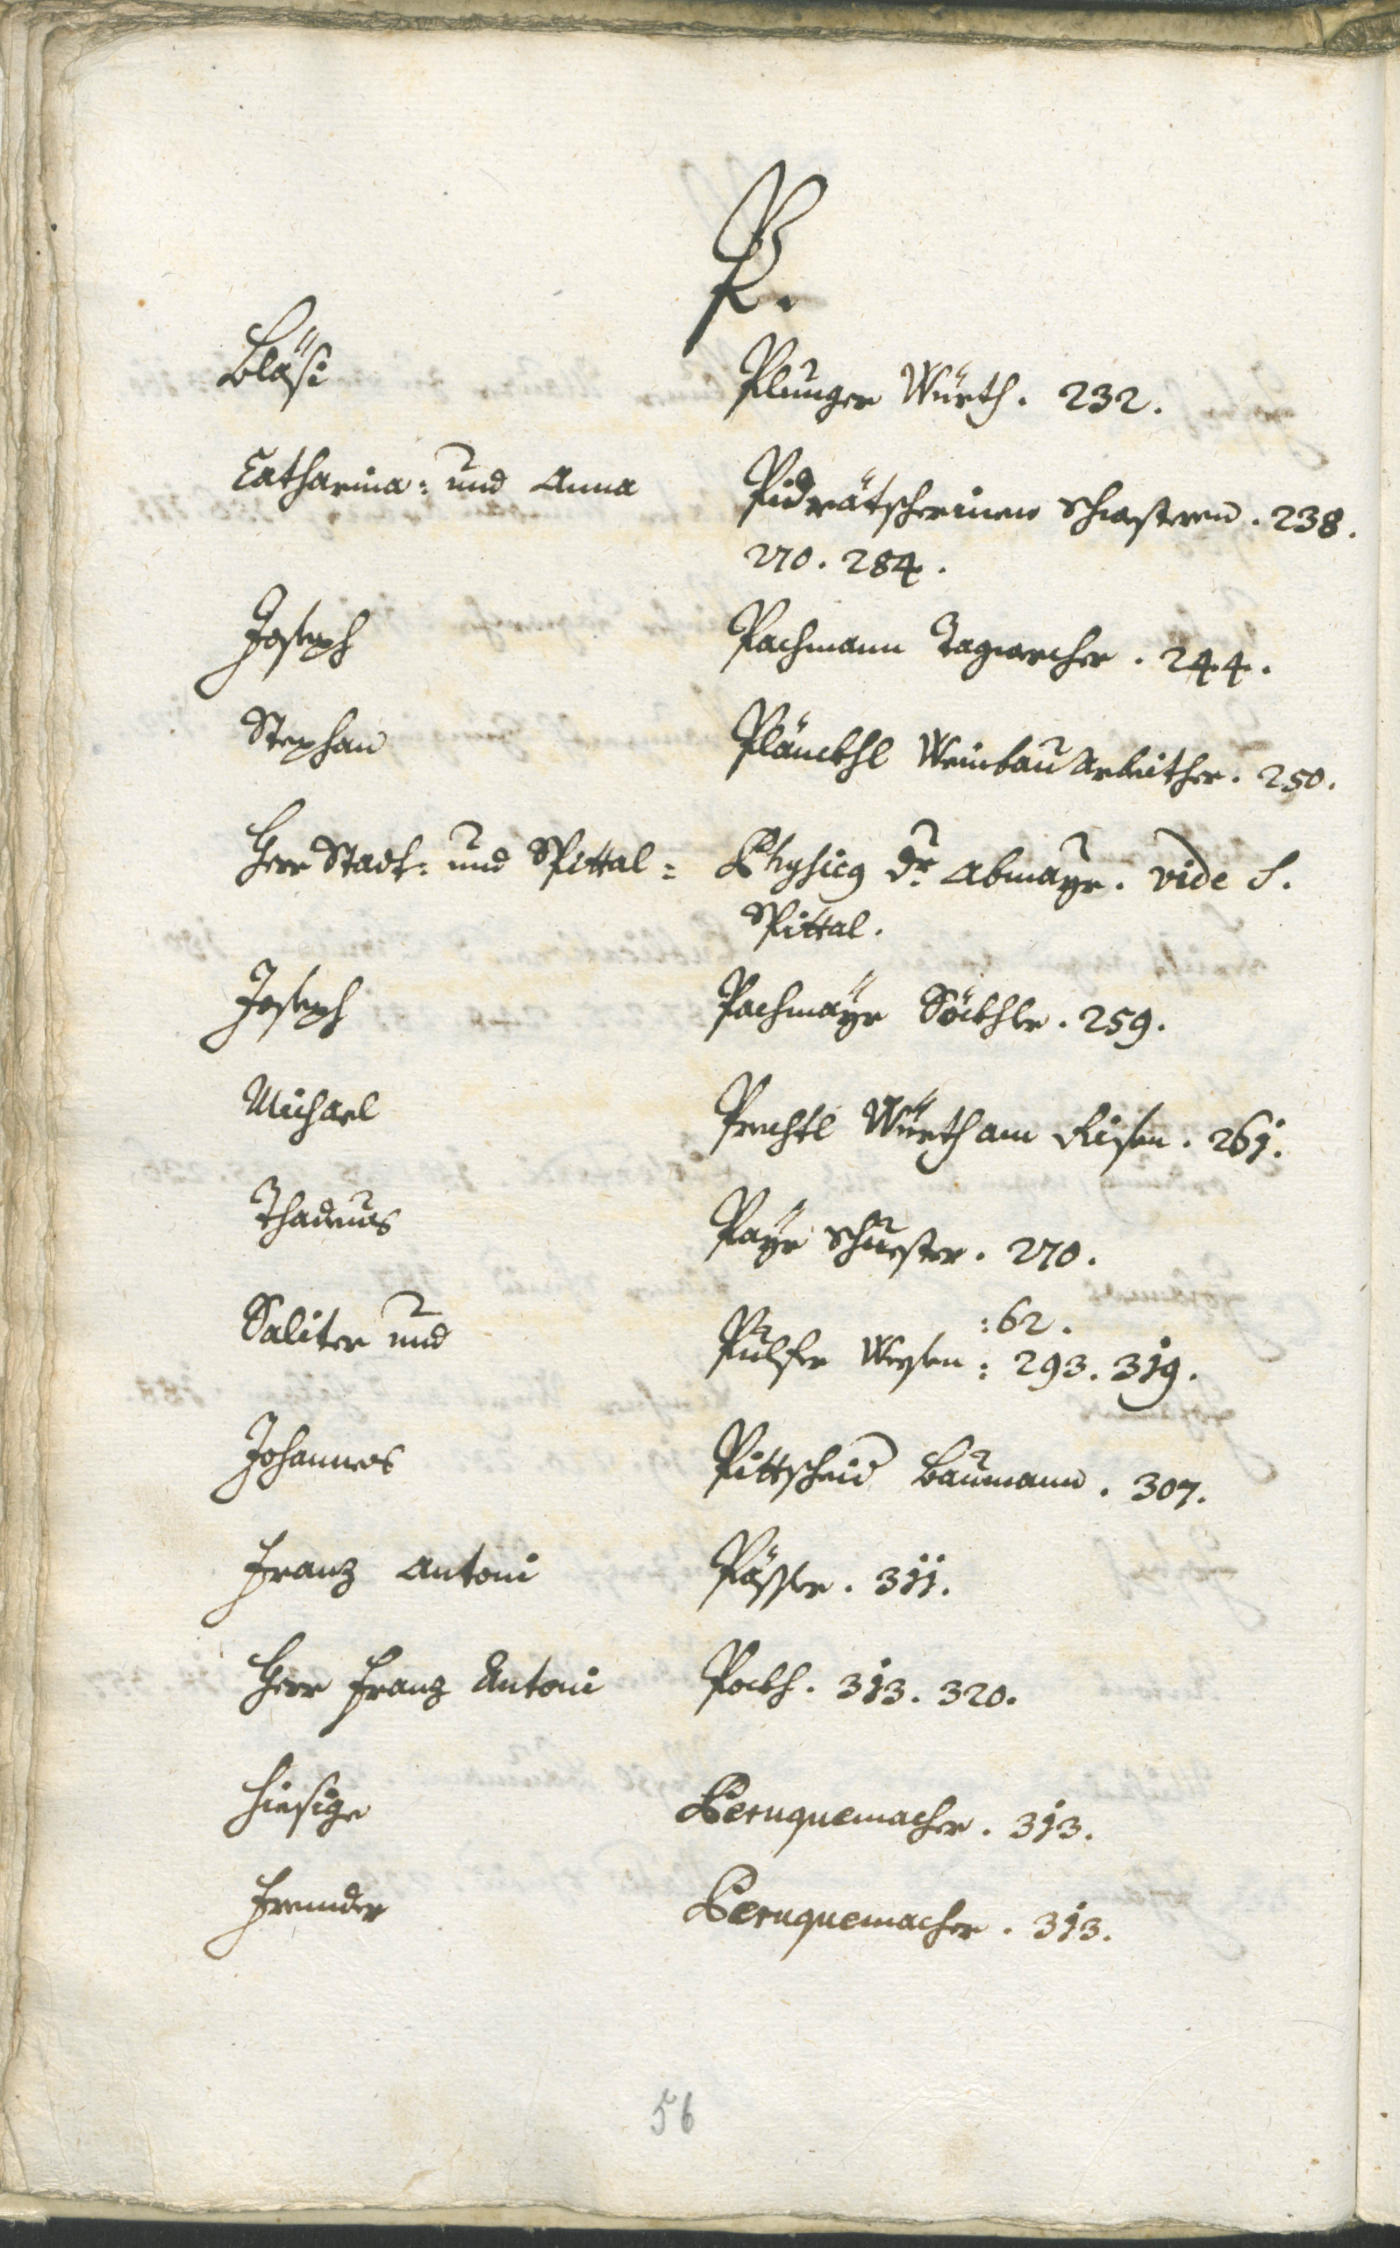 P.
Bläsi Plunger Würth. 232.
Catharina: und Anna Pidrätscherinen Schwesteren. 238.
270. 284.
Joseph Pachmann Tagwercher. 244.
Stephan Plänckhl Weinbau Arbeither. 250.
Herr Stadt: und Spittal: Physicus Dr. Abmayr. vide S.
Spittal.
Joseph Pachmayr Söckhler. 259.
Michael Prechtl Würth am Risen. 261.
Thadeus Payr Schuester. 270.
:62.
Saliter und Pulfer Wesen: 293. 319.
Johannes Pittscheid Baumann. 307.
Franz Antoni Pässler. 311.
Herr Franz Antoni Pockh. 313. 320.
Hiesige Peruquemacher. 313.
Frembder Peruquemacher. 313.
56